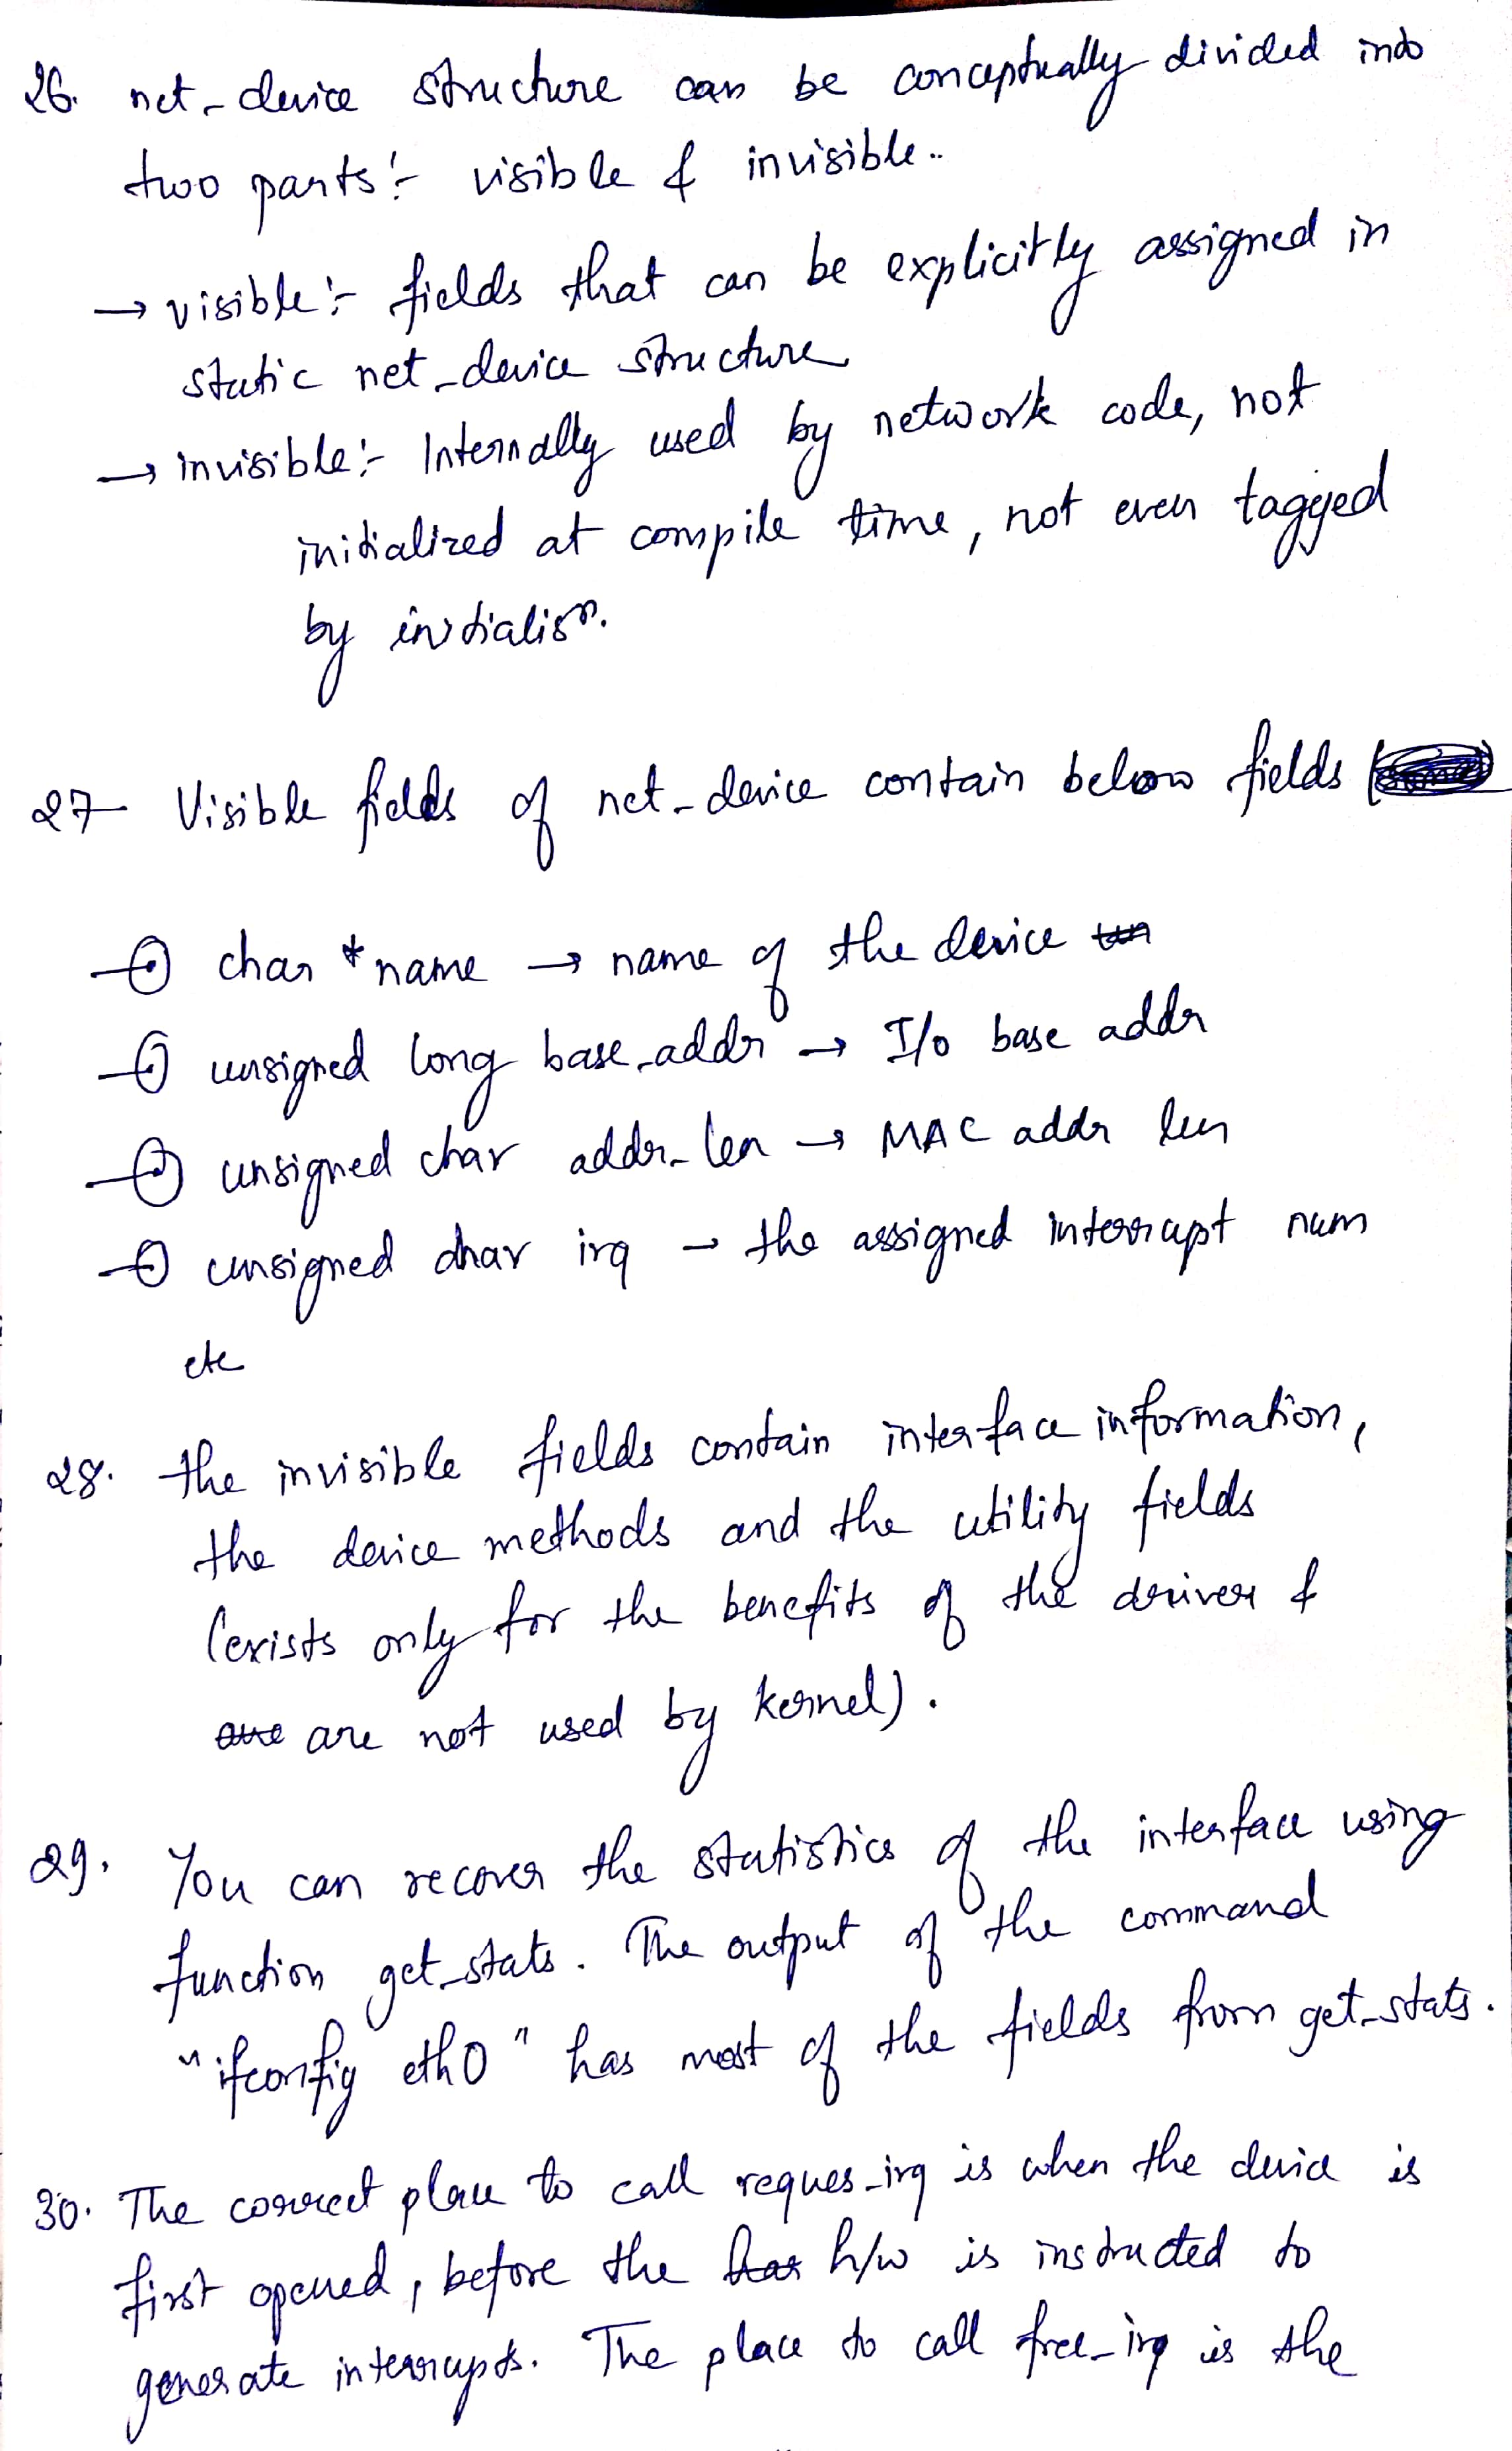 26. net_device structure can be conceptually divided into
two parts:- visible & invisible..
→ visible:- fields that can be explicitly assigned in
static net_device structure
→ invisible:- Internally used by network code, not
initialized at compile time, not even tagged
by initialisn.
27 Visible fields of net_device contain below fields
char *name → name of the device
unsigned long base_addr → I/o base addr
unsigned char addr_len → MAC addr len
unsigned char irq → the assigned interrupt num
etc
28. the invisible fields contain interface information,
the device methods and the utility fields
(exists only for the benefits of the driver &
are are not used by kernel).
29. You can recover the statistics of the interface using
function get_stats. The output of the command
"ifconfig eth0" has most of the fields from get_stats.
30. The correct place to call reques_irq is when the device is
first opened, before the har h/w is instructed to
generate interrupts. The place to call free_irq is the